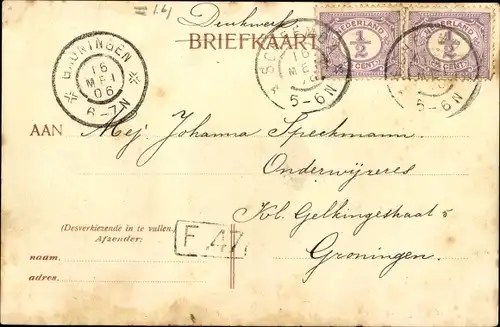 Drukwerk
BRIEFKAART
NEDERLAND
1/2
CENT
NEDERLAND
1/2
CENT
GRONINGEN
16
MEI
06
6-7N
16
MEI
5-6N
5-6N
AAN Mej. Johanna Speckmann.
Onderwijzeres
Kl. Gelkingestraat 5
Groningen.
(Desverkiezende in te vullen)
Afzender:
naam.
adres.